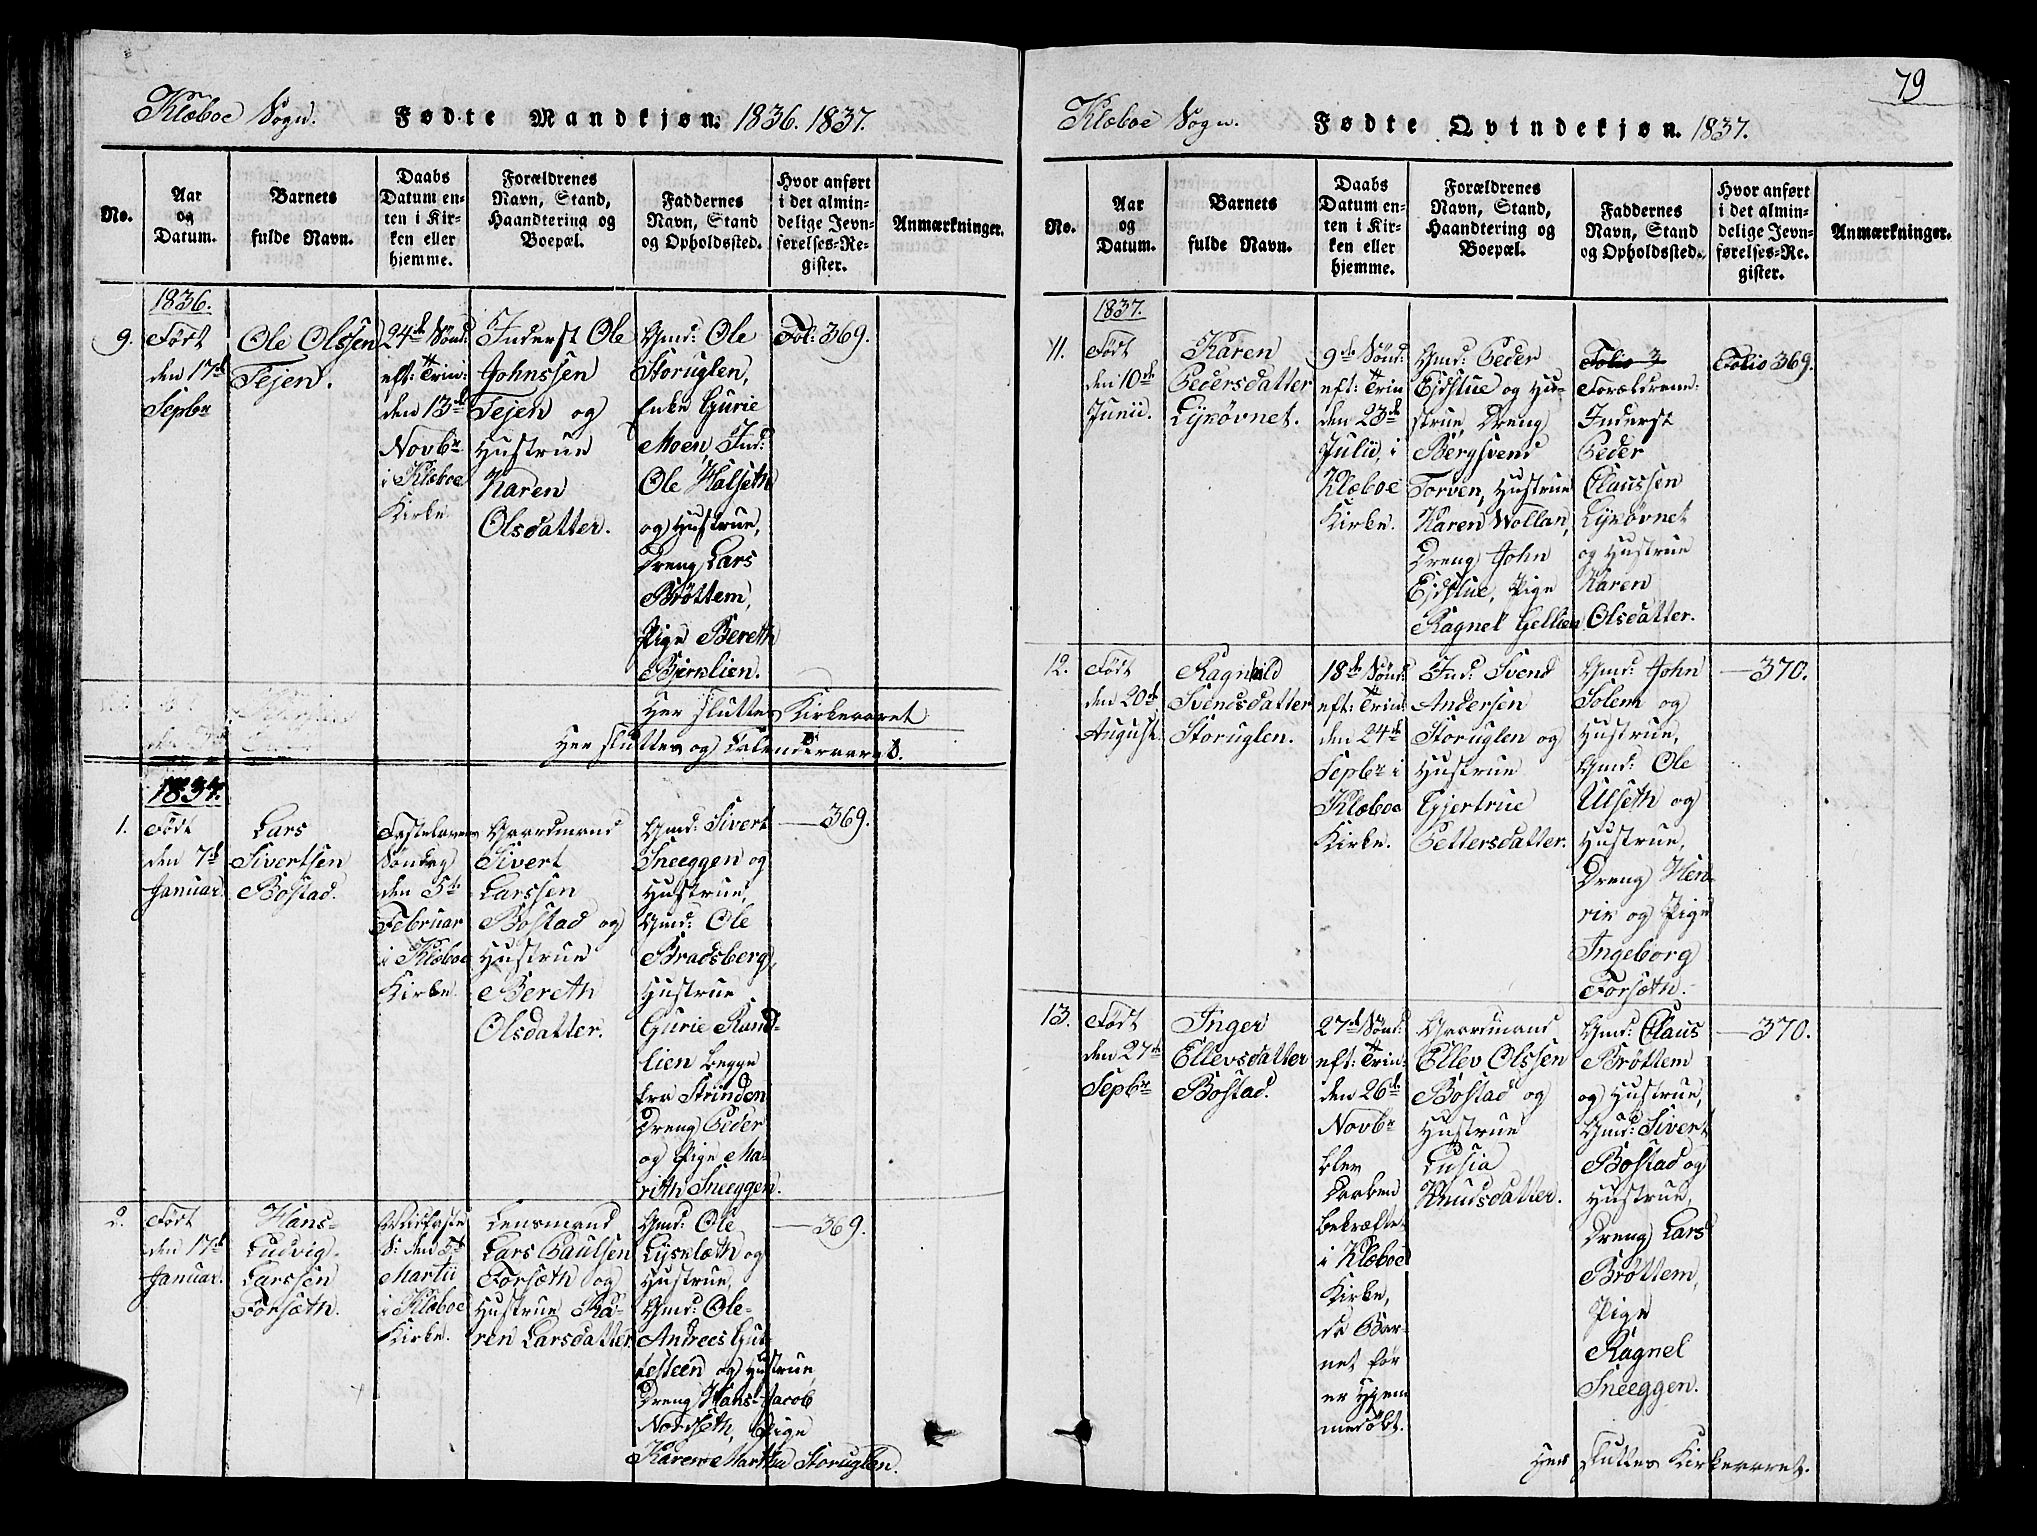 79
Klæboe Sogn. Fødte Mandkjøn. 1836. 1837.
No.
Aar
og
Datum.
Barnets
fulde Navn.
Daabs
Datum en-
ten i Kir-
ken eller
hjemme.
Forældrenes
Navn, Stand,
Haandtering og
Boepæl.
Faddernes
Navn, Stand
og Opholdssted.
Hvor anført
i det almin-
delige Jevn-
førelses-Re-
gister.
Anmærkninger.
1836.
9.
Født
den 17de
Septbr
Ole Olssen
Tejen.
24de Sönd:
eft: Trin:
den 13de
Novbr
i Klæboe
Kirke.
Inderst Ole
Johnssen
Tejen og
Hustrue
Karen
Olsdatter.
Gmd: Ole
Storuglen,
Enke Gurie
Moen, Ind:
Ole Halseth
og Hustrue,
Dreng Lars
Brøttem,
Pige Bereth
Bjerklien.
Fol: 369.
Her sluttes Kirkeaaret
Her sluttes og Calenderaaret.
1837.
1.
Født
den 7de
Januar.
Lars
Sivertsen
Bostad.
Fastelavns
Söndag
den 5te
Februar
i Klæboe
Kirke.
Gaardmand
Sivert
Larssen
Bostad og
Hustrue
Bereth
Olsdatter.
Gmd: Sivert
Sneeggen og
Hustrue,
Gmd: Ole
Bradsberg,
Hustrue
Gurie Rund-
lien begge
fra Strinden
Dreng Peder
og Pige Ma-
rith Sneeggen.
— 369.
2.
Født
den 17de
Januar.
Hans-
Ludvig
Larssen
Forsæth.
Midfaste
S: den 5te
Martii
i Klæboe
Kirke.
Lensmand
Lars Paulsen
Forsæth og
Hustrue Ka-
ren Larsdatter
Gmd: Ole
Lysklæth og
Hustrue,
Gmd: Ole-
Andreas
og Hustrue,
Dreng Hans-Jacob
Nordseth, Pige
Karen-Martha Storuglen.
— 369.
Klæboe Sogn. Fødte Qvindekjøn. 1837.
No.
Aar
og
Datum.
Barnets
fulde Navn.
Daabs
Datum en-
ten i Kir-
ken eller
hjemme.
Forældrenes
Navn, Stand,
Haandtering og
Boepæl.
Faddernes
Navn, Stand
og Opholdssted.
Hvor anført
i det almin-
delige Jevn-
førelses-Re-
gister.
Anmærkninger.
1837.
11.
Født
den 10de
Junii.
Karen
Pedersdatter
Lykövnet.
9de Sönd:
eft: Trin
den 23de
Julii, i
Klæboe
Kirke.
Gmd: Peder
Ejdstue og Hu-
strue, Dreng
Bergsvend
Torven, Hustrue
Karen Wollan,
Dreng John
Ejdstue, Pige
Ragnel Gellien
Folio 3
Forældrene:
Inderst
Peder
Claussen
Lykövnet
og Hustrue
Karen
Olsdatter.
Folio 369.
12.
Født
den 20de
August.
Ragnild
Svendsdatter
Storuglen.
18de Sönd:
eft: Trin:
den 24de
Septbr i
Klæboe
Kirke.
Ind: Svend
Andersen
Storuglen og
Hustrue
Gjertrue
Pettersdatter.
Gmd: John
Solem og
Hustrue,
Gmd: Ole
Ulseth og
Hustrue,
Dreng Hen-
rik og Pige
Ingeborg
Forsæth.
— 370.
13.
Født
den 27de
Septbr
Inger
Ellevsdatter
Bostad.
27de Sönd:
eft: Trin:
den 26de
Novbr
blev
Daaben
bekræftet
i Klæboe
Kirke,
da Bar-
net før
er hjem-
medöbt.
Gaardmand
Ellev Olssen
Bostad og
Hustrue
Lusia
Knudsdatter.
Gmd: Claus
Brøttem
og Hustrue,
Gmd: Sivert
Bostad og
Hustrue,
Dreng Lars
Brøttem,
Pige
Ragnel
Sneeggen.
— 370.
Her sluttes Kirkeaaret.